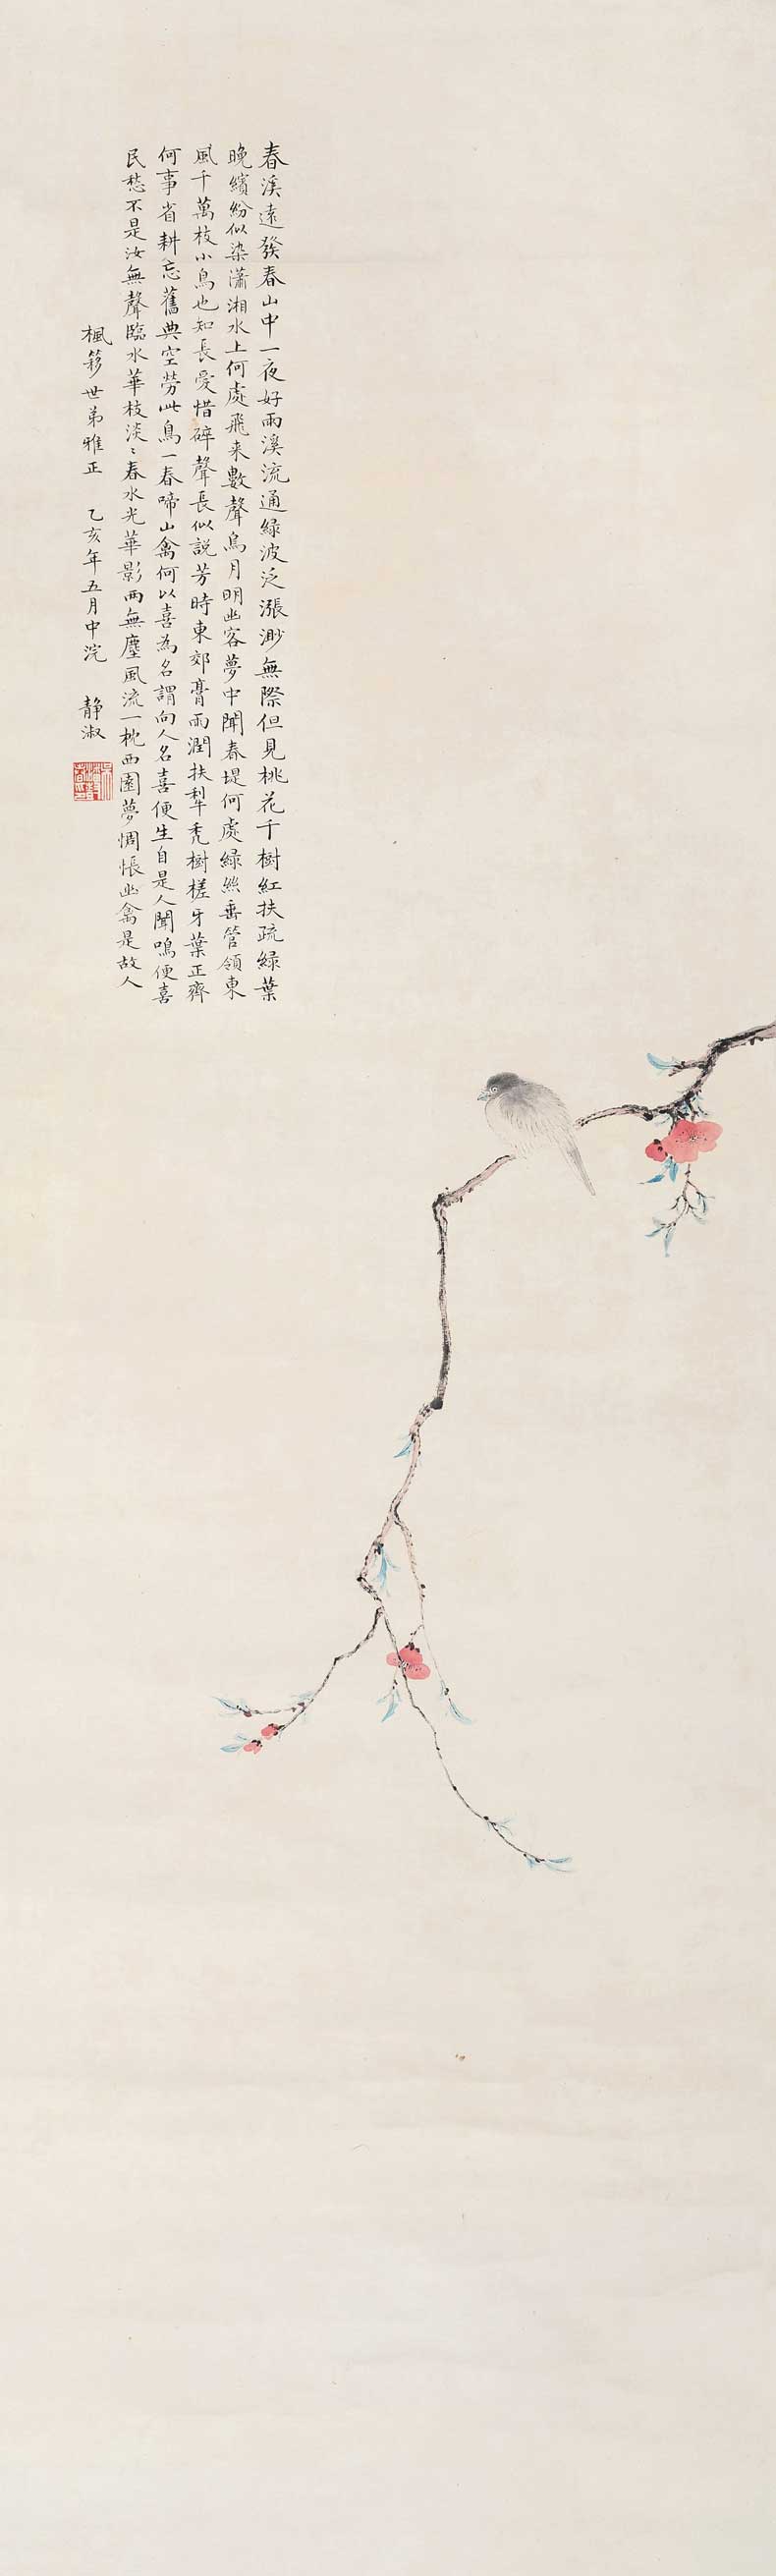 春溪遠發春山中一夜好雨溪流通綠波泛漲渺無際但見桃花千樹紅扶疏綠葉
晚繽紛似染瀟湘水上何處飛来數聲鳥月明幽客夢中聞春堤何處綠絲垂管領東
風千萬枝小鳥也知長愛惜碎聲長似說芳時東郊膏雨潤扶犂禿樹槎牙葉正齊
何事省耕忘舊典空勞此鳥一春啼山禽何以喜為名謂向人名喜便生自是人聞鳴便喜
民愁不是汝無聲臨水華枝淡〻春水光華影兩無塵風流一枕西園夢惆悵幽禽是故人
楓簃世弟雅正 乙亥年五月中浣 靜淑